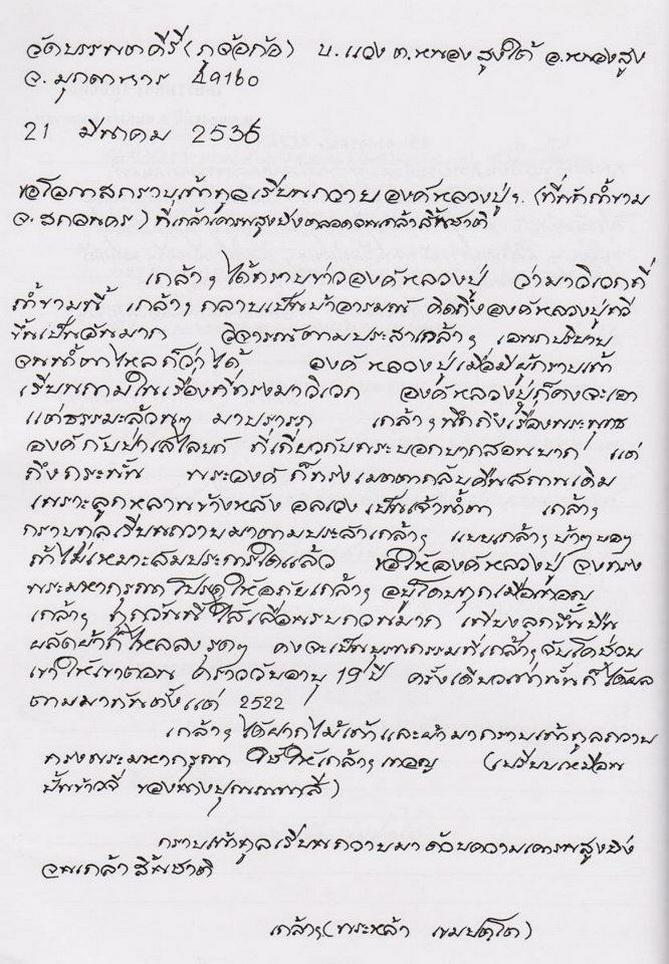 วัดบรรพตคีรี (ภูจ้อก้อ) บ.แวง ต.หนองสูงใต้ อ.หนองสูง
จ.มุกดาหาร 49160
21 มีนาคม 2536
ขอโอกาสกราบเท้าทูลเรียนถวายองค์หลวงปู่ฯ. (ที่พักถ้ำขาม
จ.สกลนคร) ที่เกล้าเคารพสูงยิ่งตลอดจนเกล้าสิ้นชาติ
เกล้าฯ ได้ทราบข่าวองค์หลวงปู่ ว่ามาวิเวกที่
ถ้ำขามนี้ เกล้าฯ กลายเป็นบ้าอารมณ์ คิดถึงองค์หลวงปู่ทวี
ขึ้นเป็นอันมาก วิจารณ์ตามประสาเกล้าฯ เอนกปริยาย
จนน้ำตาไหลก็ว่าได้ องค์หลวงปู่เมื่อมีผู้กราบเท้า
เรียนถามในเรื่องที่ทรงมาวิเวก องค์หลวงปู่ก็คงจะเอา
แต่ธรรมะล้วนๆ มาปรารภ เกล้าฯ นึกถึงเรื่องพระพุทธ
องค์กับป่าเลไลยก์ ที่เกี่ยวกับพระบอกยากสอนยาก แต่
ถึงกระนั้น พระองค์ ก็ทรงเมตตากลับคืนสภาพเดิม
เพราะลูกหลานข้างหลัง อลเวง เป็นเจ้าน้ำตา เกล้าฯ
กราบทูลเรียนถวายมาตามประสาเกล้าฯ แบบเกล้าฯ บ้าๆ บอๆ
ถ้าไม่เหมาะสมประการใดแล้ว ขอให้องค์หลวงปู่ จงทรง
พระมหากรุณาโปรดให้อภัยเกล้าฯ อยู่โดยทุกเมื่อเทอญ
เกล้าฯ ทุกวันนี้ ไส้เลื่อนรบกวนมาก เพียงลุกขึ้นยืน
ผลัดผ้าก็ไหลลงรูดๆ คงจะเป็นบุพกรรมที่เกล้าฯ จับโคช่วย
เขาให้เขาตอน คราววันอายุ 19 ปี ครั้งเดียวเท่านั้นก็ได้ผล
ตามมาทันตั้งแต่ 2522
เกล้าฯ ได้ฝากไม้เท้าและผ้ามากราบเท้าทูลถวาย
ทรงพระมหากรุณา ใช้ให้เกล้าฯ เทอญ (เปรียบเหมือน
ปั้นข้าวจี่ ของนางปุณณทาสี)
กราบเท้าทูลเรียนถวายมาด้วยความเคารพสูงยิ่ง
จนเกล้าสิ้นชาติ
เกล้าฯ (พระหล้า เขมปตฺโต)